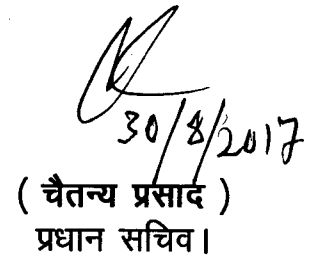 30/8/2017
( चैतन्य प्रसाद )
प्रधान सचिव।